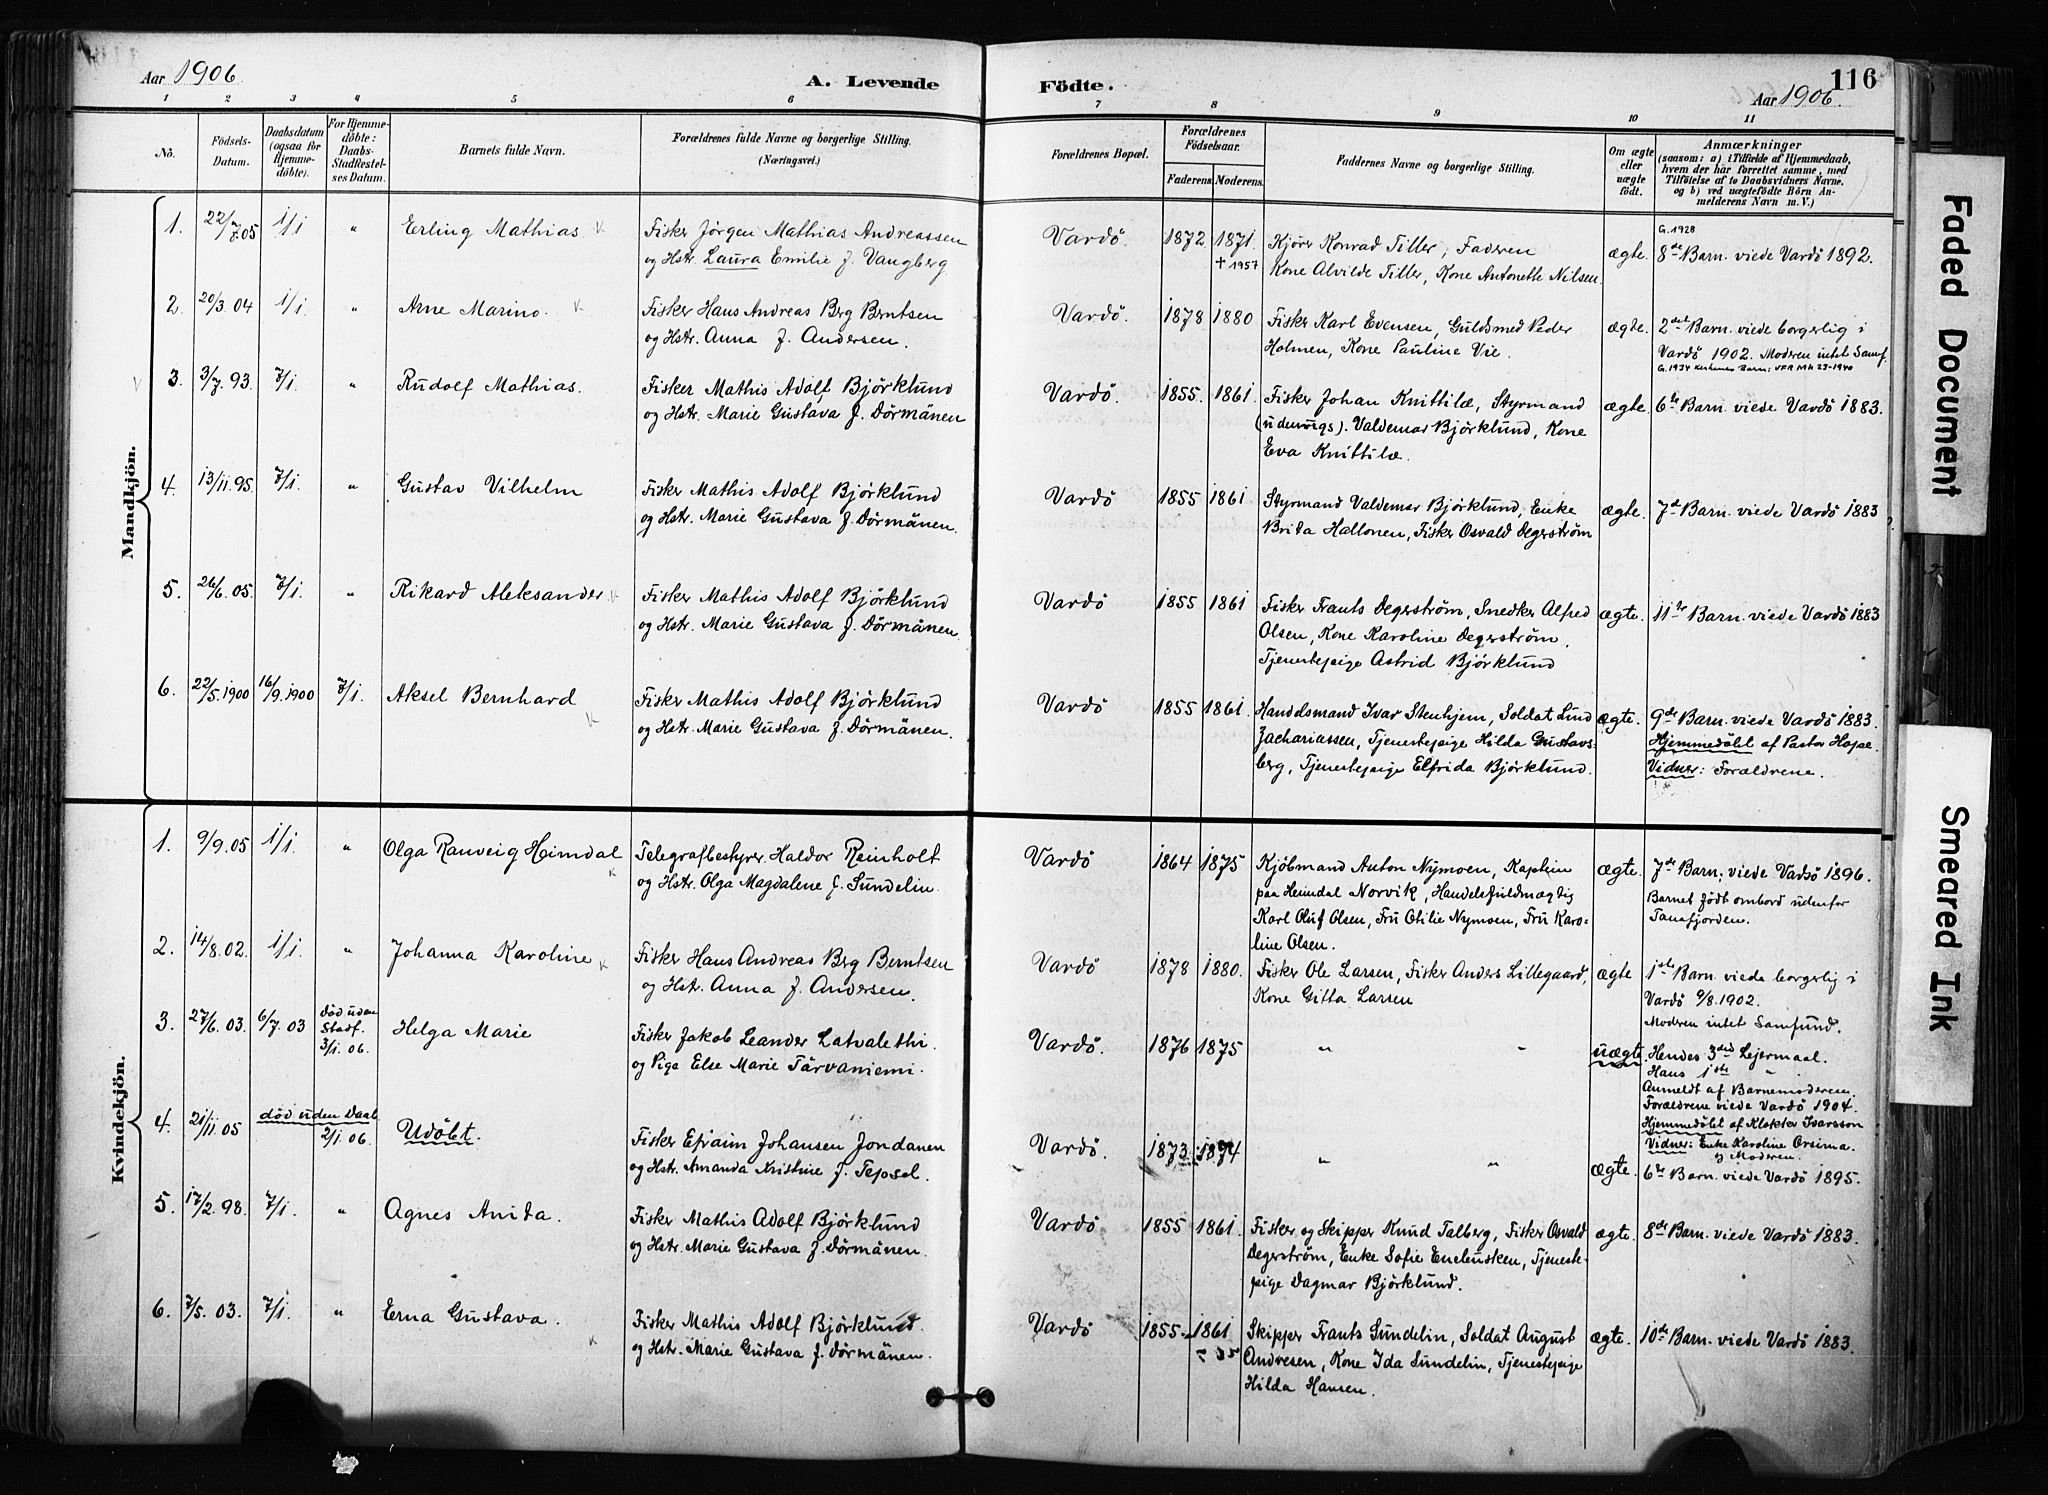 Aar 1906
A. Levende
Födte.
Aar 1906.
116
1 2 3 4 5 6 7 8 9 10 11
No.
Födsels-Datum.
Daabsdatum (ogsaa for Hjemmedöbte).
For Hjemmedöbte: Daabs-Stadfæstelses Datum.
Barnets fulde Navn.
Forældrenes fulde Navne og borgerlige Stilling. (Næringsvei.)
Forældrenes Bopæl.
Forældrenes Födselsaar.
Faderens. Moderens.
Faddernes Navne og borgerlige Stilling.
Om ægte eller uægte födt.
Anmærkninger
(saasom: a) i Tilfælde af Hjemmedaab, hvem der har forrettet samme, med Tilföielse af to Daabsvidners Navne, og b) ved uægtefödte Börn Anmelderens Navn m. V.)
Mandkjön.
1. 22/7.05 1/1 " Erling Mathias
Fisker Jörgen Mathias Andreassen
og Hstr. Laura Emilie f. Vangberg
Vardö. 1872 1871. † 1957
Kjörer Konrad Tiller, Faderen
Kone Alvilde Tiller, Kone Antonette Nilsen.
ægte.
G. 1928
8de Barn. viede Vardö 1892.
2. 20/3.04 1/1. " Arne Marino.
Fisker Hans Andreas Berg Berntsen
og Hstr. Anna f. Andersen.
Vardö. 1878 1880
Fisker Karl Evensen, Guldsmed Peder
Holmen, Kone Pauline Vie.
ægte.
2det Barn. viede borgerlig i
Vardö 1902. Moderen intet Samf.
G. 1934 Kirkenes
3. 3/7.93. 7/1. " Rudolf Mathias.
Fisker Mathis Adolf Björklund
og Hstr. Marie Gustava f. Dörmänen
Vardö. 1855. 1861.
Fisker Johan Knittilæ, Styrmand
(udenvigs). Valdemar Björklund, Kone
Eva Knittilæ.
ægte.
6te Barn. viede Vardö 1883.
4. 13/11.95. 7/1. " Gustav Vilhelm
Fisker Mathis Adolf Björklund
og Hstr. Marie Gustava f. Dörmänen.
Vardö 1855 1861
Styrmand Valdemar Björklund, Enke
Brita Hallonen, Fisker Osvald Degerström
ægte.
7de Barn. viede Vardö 1883
5. 26/6.05. 7/1. " Rikard Aleksander
Fisker Mathis Adolf Björklund
og Hstr. Marie Gustava f. Dörmänen.
Vardö 1855 1861
Fisker Frants Degerström, Snedker Alfred
Olsen, Kone Karoline Degerström,
Tjenestepige Astrid Björklund
ægte.
11te Barn. viede Vardö 1883
6. 22/5.1900 16/9.1900 7/1. Aksel Bernhard
Fisker Mathis Adolf Björklund
og Hstr. Marie Gustava f. Dörmänen.
Vardö 1855 1861.
Handelsmand Ivar Stenhjem, Soldat Lind
Zachariassen, Tjenestepige Hilda Gustavs-
berg, Tjenestepige Elfrida Björklund.
ægte.
9de Barn. viede Vardö 1883.
Hjemmedöbt af Pastor Hope.
Vidner: Forældrene.
Kvindekjön.
1. 9/9.05 1/1. " Olga Ranveig Heimdal
Telegrafbestyrer Haldor Reinholt
og Hstr. Olga Magdalene f. Sundelin.
Vardö 1864 1875
Kjöbmand Anton Nymoen, Kaptein
paa Heimdal Norvik, Handelsfuldmægtig
Karl Oluf Olsen, Fru Otilie Nymoen, Fru Karo-
line Olsen.
ægte.
7de Barn; viede Vadsö 1896.
Barnet födt ombord udenfor
Tanafjorden.
2. 14/8.02. 1/1. " Johanna Karoline
Fisker Hans Andreas Berg Berntsen
og Hstr. Anna f. Andersen.
Vardö 1878 1880.
Fisker Ole Larsen, Fisker Anders Lillegaard,
Kone Gitta Larsen
ægte
1ste Barn viede borgerlig i
Vardö 9/8.1902.
Moderen intet Samfund.
3. 27/6.03. 6/7.03 död uden Stadf. 3/1.06. Helga Marie
Fisker Jakob Leander Latvalethi.
og Pige Else Marie Tärvaniemi.
Vardö. 1876 1875 " "
uægte.
Hendes 3die Lejermaal.
Hans 1ste "
Anmeldt af Barnemoderen.
Forældrene viede Vardö 1904.
Hjemmedöbt af Klokker Ivarsson
Vidner: Enke Karoline Orsima.
og Moderen.
4. 21/11.05 död uden Daab 2/1.06. Udöbt.
Fisker Efraim Johansen Jondanen
og Hstr. Amanda Kristine f. Tepsel.
Vardö. 1873 1874 " "
ægte.
6te Barn. viede Vardö 1895.
5. 17/2.98. 7/1. " Agnes Anida.
Fisker Mathis Adolf Björklund
og Hstr. Marie Gustava f. Dörmänen.
Vardö 1855 1861.
Fisker og Skipper Knud Talberg, Fisker Osvald
Degerström, Enke Sofie Enebusken, Tjeneste-
pige Dagmar Björklund.
ægte.
8de Barn. viede Vardö 1883.
6. 7/5.03. 7/1. " Erna Gustava.
Fisker Mathis Adolf Björklund.
og Hstr. Marie Gustava f. Dörmänen.
Vardö 1855. 1861
Skipper Frants Sundelin, Soldat August
Andresen, Kone Ida Sundelin, Tjenestepige
Hilda Hansen.
ægte.
10de Barn. viede Vardö 1883.
Faded Document
Smeared Ink